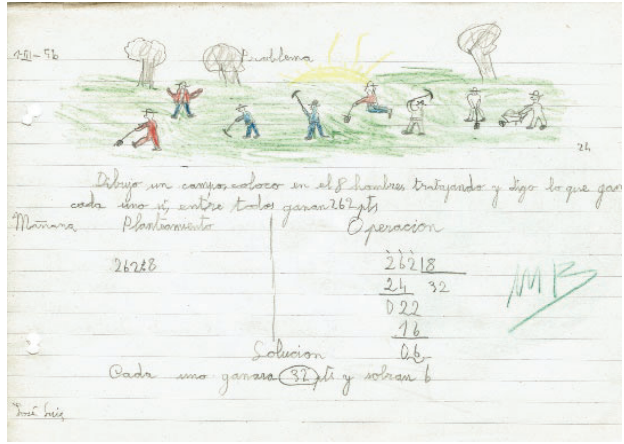 1-III-56
Problema
24
Dibujo un campo, coloco en el 8 hombres trabajando y digo lo que gana
cada uno si entre todos ganan 262 pts
Mañana Planteamiento Operación
262:8 262 8
24 32
022
16
06
MB
Solucion
Cada uno ganara 32 pts y sobran 6
José Luis